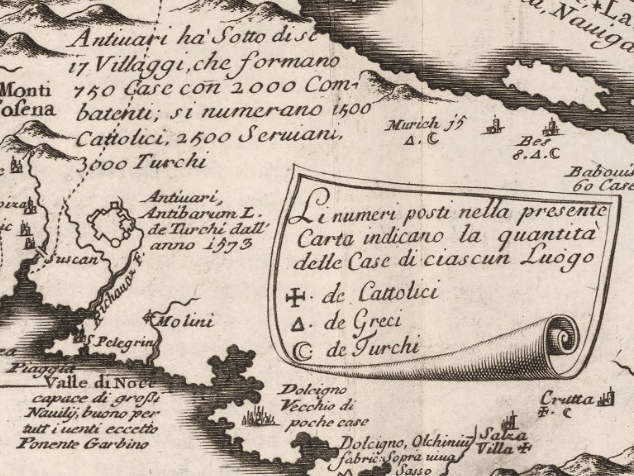 Antiuari ha' Sotto di se
17 Villaggi, che formano
750 Case con 2000 Com-
batenti; si numerano 1500
Cattolici, 2500 Seruiani,
3000 Turchi
Monti
La
Nauiga
Murich 15
Δ. ☾
Bes
8. Δ. ☾
60 Case
Antiuari,
Antibarum L.
de Turchi dall'
anno 1573
Suscan
F.
Li numeri posti nella presente
Carta indicano la quantità
delle Case di ciascun Luogo
✠. de Cattolici
Δ. de Greci
☾ de Turchi
Molini
S. Pelegrin
Piaggia
Valle di Noce
capace di großi
Nauilij, buono per
tutt i uenti eccetto
Ponente Garbino
Dolcigno
Vecchio di
poche case
Crutta
✠. ☾
Salza
Villa ✠
Dolcigno, Olchiniu
fabric: Sopra uiuo
Sasso